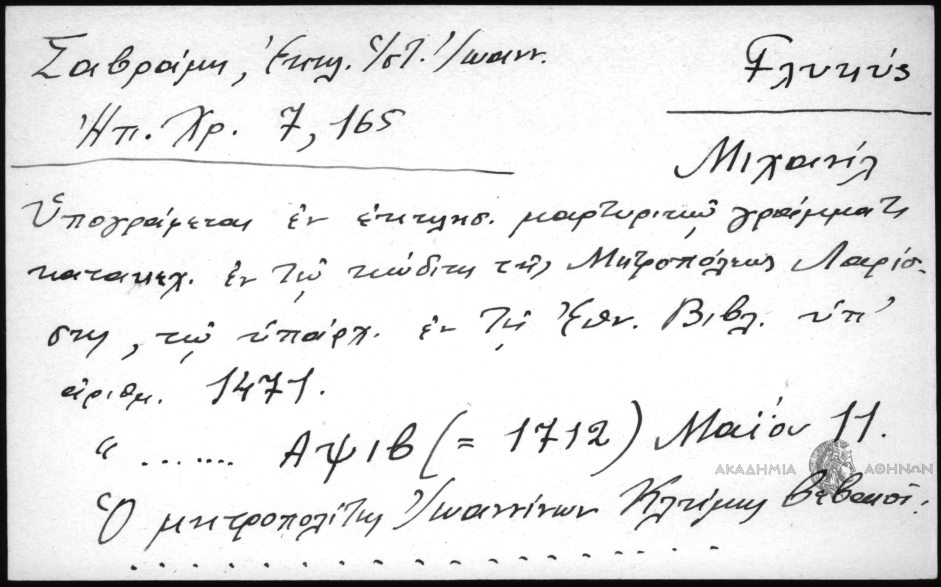 Σαβράμη, Ἐκκλ. Ἱστ. Ἰωανν.
Ἠπ. Χρ. 7, 165
Γλυκύς
Μιχαήλ
Ὑπογράφεται ἐν ἐκκλησ. μαρτυρικῷ γράμματι
κατακεχ. ἐν τῷ κώδικι τῆς Μητροπόλεως Λαρίσ-
σης, τῷ ὑπάρχ. ἐν τῇ Ἐθν. Βιβλ. ὑπ'
ἀριθμ. 1471.
" ....... ΑΨΙΒ (= 1712) Μαΐου 11.
ΑΚΑΔΗΜΙΑ ΑΘΗΝΩΝ
Ὁ μητροπολίτης Ἰωαννίνων Κλήμης βεβαιοῖ.